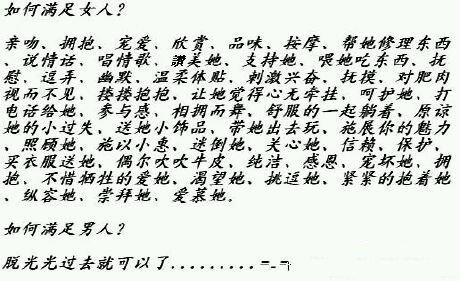 如何满足女人?
亲吻、拥抱、宠爱、欣赏、品味、按摩、帮她修理东西
、说情话、唱情歌、讚美她、支持她、喂她吃东西、抚
慰、逗弄、幽默、温柔体贴、刺激兴奋、抚摸、对肥肉
视而不见、搂搂抱抱、让她觉得心无牵挂、呵护她、打
电话给她、参与感、相拥而舞、舒服的一起躺着、原谅
她的小过失、送她小饰品、带她出去玩、施展你的魅力
、照顾她、施以小惠、迷倒她、关心她、信赖、保护、
买衣服送她、偶尔吹吹牛皮、纯洁、感恩、宠坏她、拥
抱、不惜牺牲的爱她、渴望她、挑逗她、紧紧的抱着她
、纵容她、崇拜她、爱慕她.
如何满足男人?
脱光光过去就可以了.........=_=